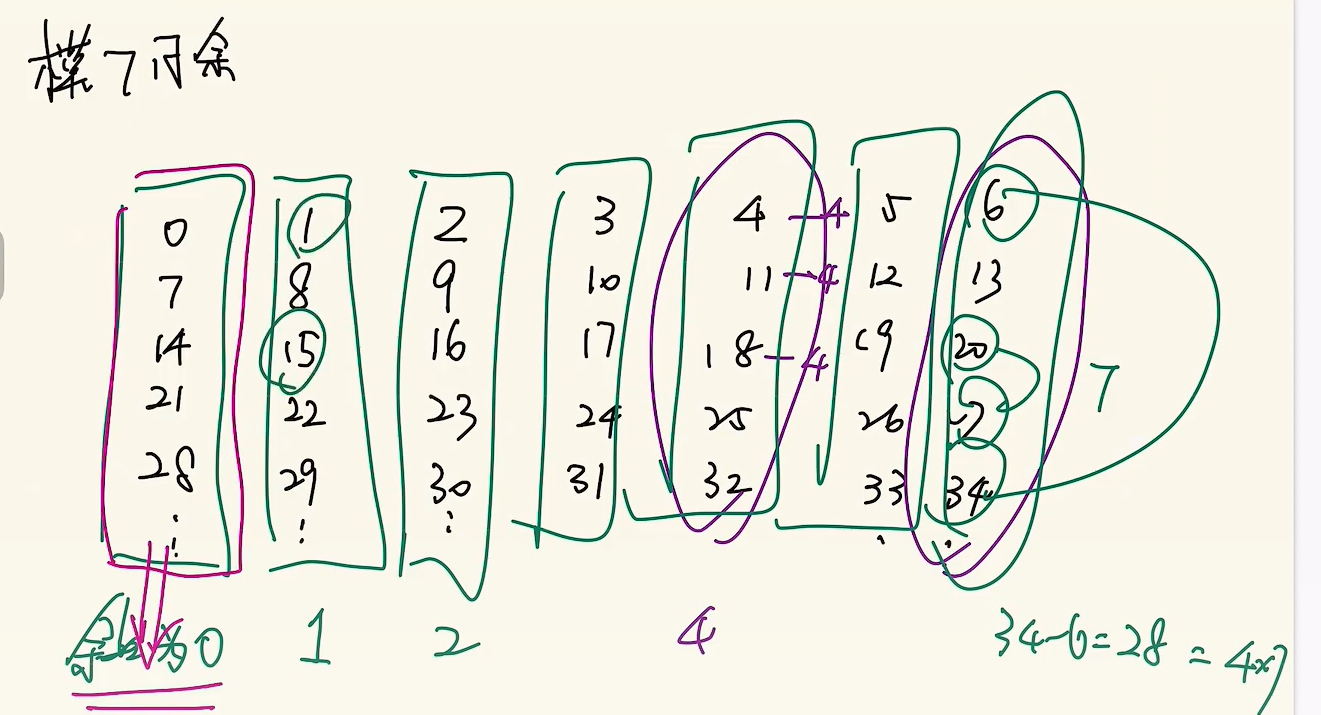 模7同余
0 1 2 3 4 — 4 5 6
7 8 9 10 11 — 4 12 13
14 15 16 17 18 — 4 19 20
21 22 23 24 25 26 27 7
28 29 30 31 32 33 34
⋮ ⋮ ⋮ . .
余数为0 1 2 4 34-6=28=4×7